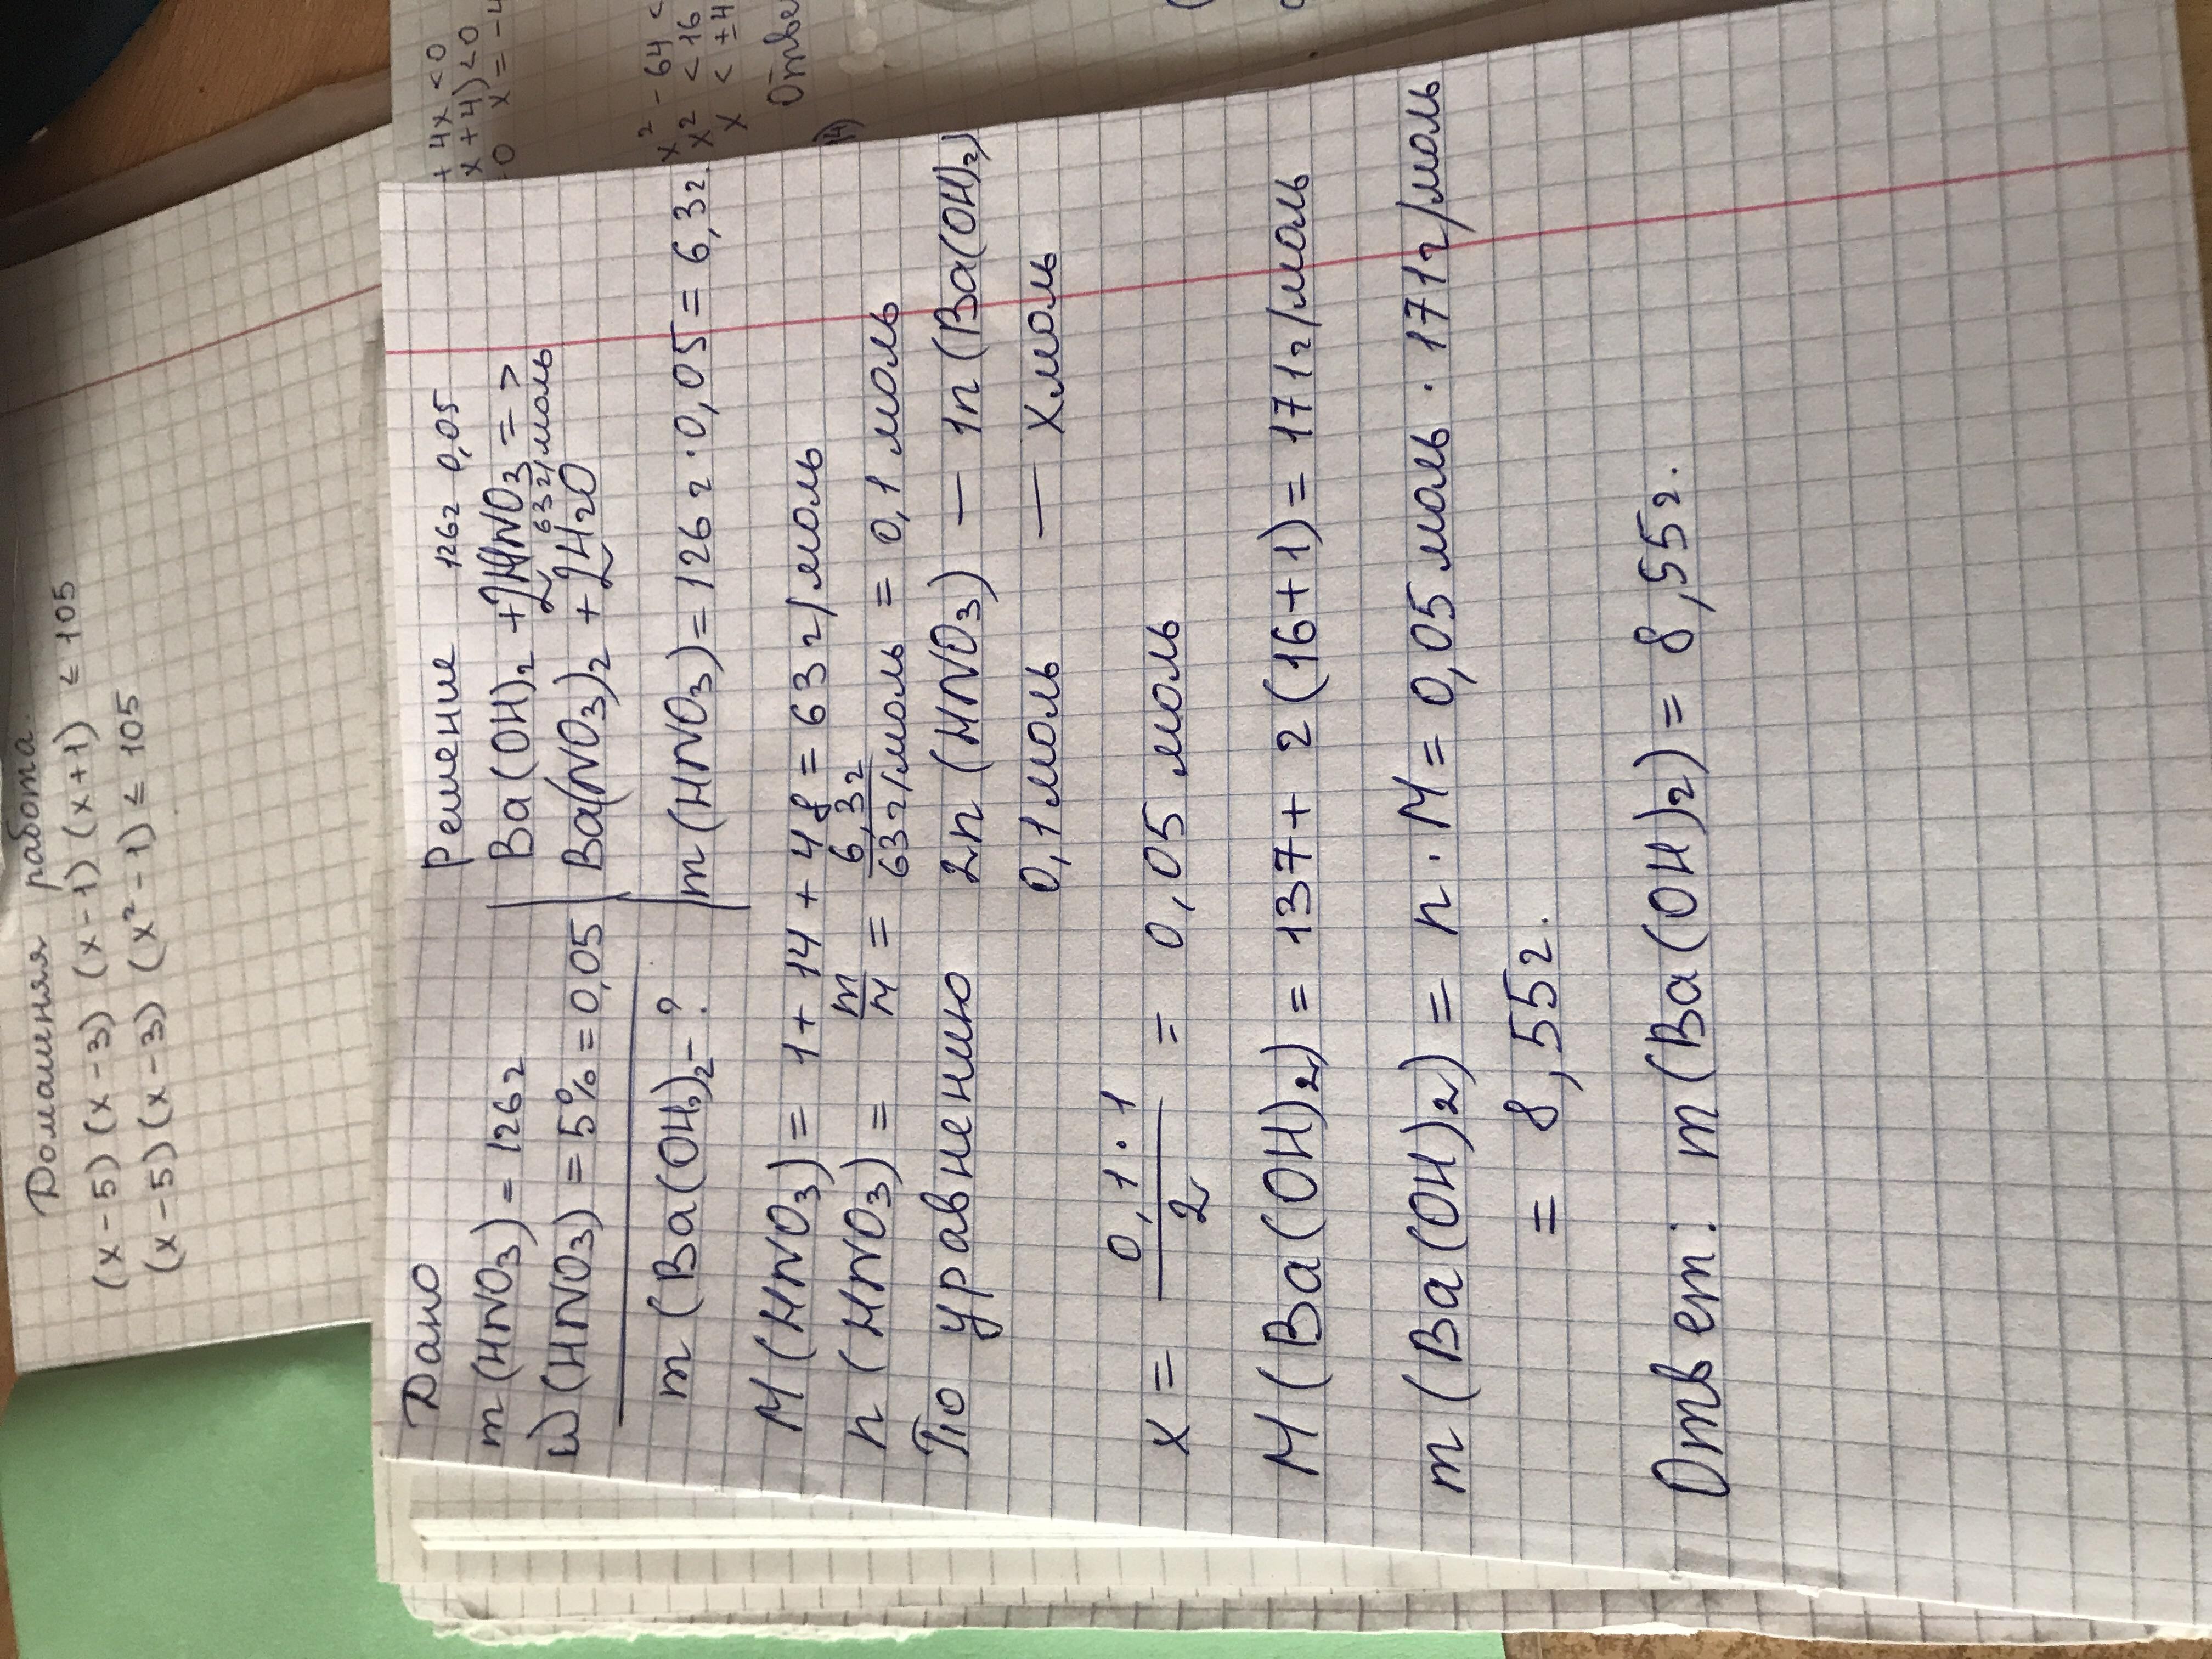 Домашняя работа.
(x-5)(x-3)(x-1)(x+1) ≤ 105
(x-5)(x-3)(x²-1) ≤ 105
+ 4x < 0
x + 4) < 0
x² - 64 <
x² < 16
x < ±4
Дано
Решение
126г 0,05
m(HNO₃) = 126г
Ba(OH)₂ + 2HNO₃ = >
63г/моль
W(HNO₃) = 5% = 0,05
Ba(NO₃)₂ + 2H₂O
m(Ba(OH)₂ - ?
m(HNO₃) = 126г · 0,05 = 6,3г.
M(HNO₃) = 1 + 14 + 48 = 63 г/моль
n(HNO₃) = m/M = 6,3г/63г/моль = 0,1 моль
По уравнению 2n(HNO₃) — 1n(Ba(OH)₂)
0,1моль — Xмоль
X = 0,1·1/2 = 0,05 моль
M(Ba(OH)₂) = 137 + 2(16+1) = 171г/моль
m(Ba(OH)₂) = n · M = 0,05 моль · 171г/моль
= 8,55г.
Ответ: m(Ba(OH)₂) = 8,55г.